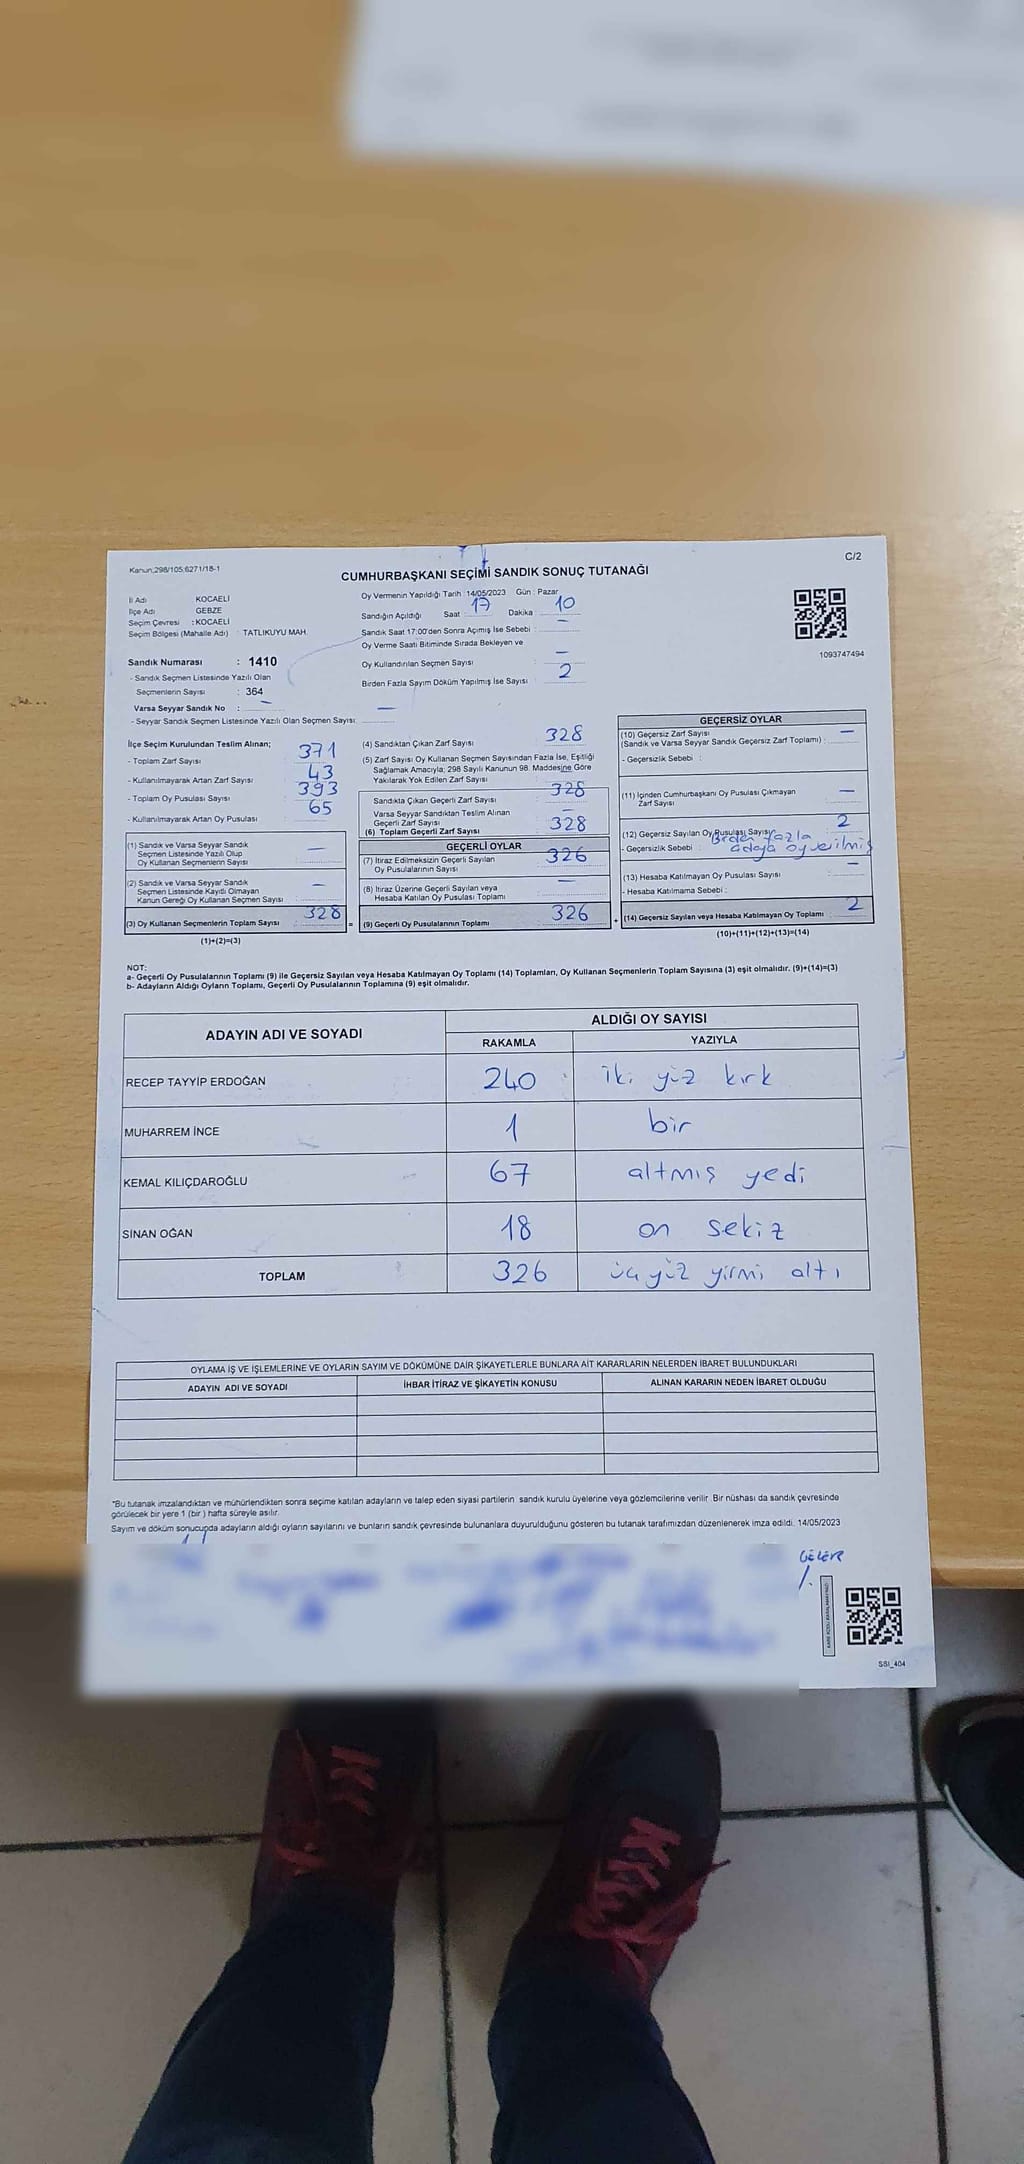 Kanun;298/105;6271/18-1
C/2
CUMHURBAŞKANI SEÇİMİ SANDIK SONUÇ TUTANAĞI
İl Adı KOCAELİ
İlçe Adı GEBZE
Seçim Çevresi : KOCAELİ
Seçim Bölgesi (Mahalle Adı) : TATLIKUYU MAH.
Oy Vermenin Yapıldığı Tarih : 14/05/2023 Gün : Pazar
Sandığın Açıldığı Saat 17 Dakika 10
Sandık Saat 17:00'den Sonra Açımış İse Sebebi : —
Oy Verme Saati Bitiminde Sırada Bekleyen ve
Oy Kullandırılan Seçmen Sayısı : —
Birden Fazla Sayım Döküm Yapılmış İse Sayısı : 2
1093747494
Sandık Numarası : 1410
- Sandık Seçmen Listesinde Yazılı Olan
Seçmenlerin Sayısı : 364
Varsa Seyyar Sandık No : —
- Seyyar Sandık Seçmen Listesinde Yazılı Olan Seçmen Sayısı: —
İlçe Seçim Kurulundan Teslim Alınan;
- Toplam Zarf Sayısı : 371
- Kullanılmayarak Artan Zarf Sayısı : 43
- Toplam Oy Pusulası Sayısı : 393
- Kullanılmayarak Artan Oy Pusulası : 65
(1) Sandık ve Varsa Seyyar Sandık
Seçmen Listesinde Yazılı Olup
Oy Kullanan Seçmenlerin Sayısı : —
(2) Sandık ve Varsa Seyyar Sandık
Seçmen Listesinde Kayıtlı Olmayan
Kanun Gereği Oy Kullanan Seçmen Sayısı : —
(3) Oy Kullanan Seçmenlerin Toplam Sayısı : 328
(1)+(2)=(3)
(4) Sandıktan Çıkan Zarf Sayısı : 328
(5) Zarf Sayısı Oy Kullanan Seçmen Sayısından Fazla İse, Eşitliği
Sağlamak Amacıyla; 298 Sayılı Kanunun 98. Maddesine Göre
Yakılarak Yok Edilen Zarf Sayısı : —
Sandıkta Çıkan Geçerli Zarf Sayısı : 328
Varsa Seyyar Sandıktan Teslim Alınan
Geçerli Zarf Sayısı : —
(6) Toplam Geçerli Zarf Sayısı : 328
GEÇERLİ OYLAR
(7) İtiraz Edilmeksizin Geçerli Sayılan
Oy Pusulalarının Sayısı : 326
(8) İtiraz Üzerine Geçerli Sayılan veya
Hesaba Katılan Oy Pusulası Toplamı : —
(9) Geçerli Oy Pusulalarının Toplamı : 326
GEÇERSİZ OYLAR
(10) Geçersiz Zarf Sayısı
(Sandık ve Varsa Seyyar Sandık Geçersiz Zarf Toplamı) : —
- Geçersizlik Sebebi :
(11) İçinden Cumhurbaşkanı Oy Pusulası Çıkmayan
Zarf Sayısı : —
(12) Geçersiz Sayılan Oy Pusulası Sayısı : 2
- Geçersizlik Sebebi : Birden fazla
adaya oy verilmiş
(13) Hesaba Katılmayan Oy Pusulası Sayısı : —
- Hesaba Katılmama Sebebi :
(14) Geçersiz Sayılan veya Hesaba Katılmayan Oy Toplamı : 2
(10)+(11)+(12)+(13)=(14)
NOT:
a- Geçerli Oy Pusulalarının Toplamı (9) ile Geçersiz Sayılan veya Hesaba Katılmayan Oy Toplamı (14) Toplamları, Oy Kullanan Seçmenlerin Toplam Sayısına (3) eşit olmalıdır. (9)+(14)=(3)
b- Adayların Aldığı Oyların Toplamı, Geçerli Oy Pusulalarının Toplamına (9) eşit olmalıdır.
ADAYIN ADI VE SOYADI ALDIĞI OY SAYISI
RAKAMLA YAZIYLA
RECEP TAYYİP ERDOĞAN 240 iki yüz kırk
MUHARREM İNCE 1 bir
KEMAL KILIÇDAROĞLU 67 altmış yedi
SİNAN OĞAN 18 on sekiz
TOPLAM 326 üç yüz yirmi altı
OYLAMA İŞ VE İŞLEMLERİNE VE OYLARIN SAYIM VE DÖKÜMÜNE DAİR ŞİKAYETLERLE BUNLARA AİT KARARLARIN NELERDEN İBARET BULUNDUKLARI
ADAYIN ADI VE SOYADI İHBAR İTİRAZ VE ŞİKAYETİN KONUSU ALINAN KARARIN NEDEN İBARET OLDUĞU
*Bu tutanak imzalandıktan ve mühürlendikten sonra seçime katılan adayların ve talep eden siyasi partilerin sandık kurulu üyelerine veya gözlemcilerine verilir. Bir nüshası da sandık çevresinde
görülecek bir yere 1 (bir) hafta süreyle asılır.
Sayım ve döküm sonucunda adayların aldığı oyların sayılarını ve bunların sandık çevresinde bulunanlara duyurulduğunu gösteren bu tutanak tarafımızdan düzenlenerek imza edildi. 14/05/2023
SSI_404